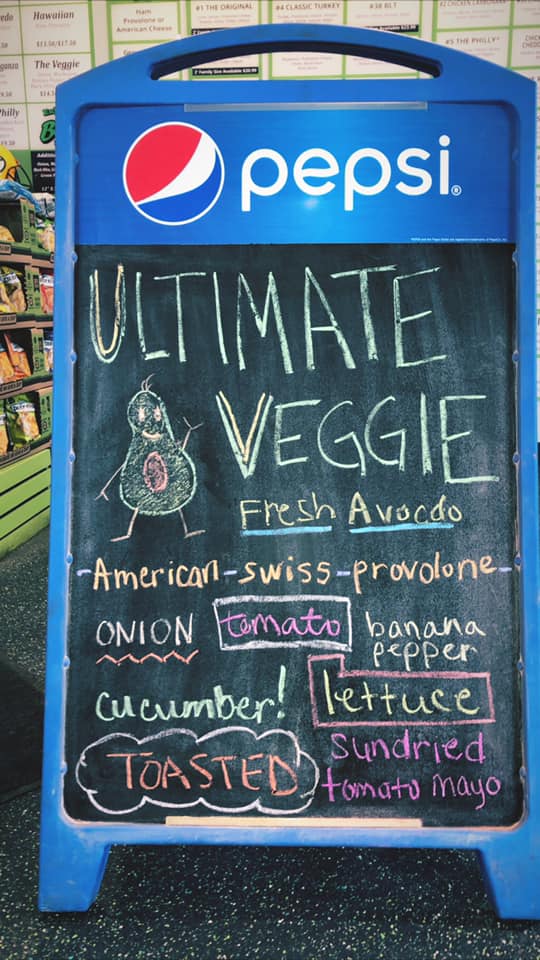 Hawaiian
$13.50/$17.50
The Veggie
Ham
Provolone or
American Cheese
#1 THE ORIGINAL
2' Family Size Available $20.99
#4 CLASSIC TURKEY
#38 BLT
#2 CHICKEN CARBONARA*
#5 THE PHILLY*
pepsi®
ULTIMATE
VEGGIE
Fresh Avocdo
-American-swiss-provolone-
ONION tomato banana
pepper
cucumber! lettuce
TOASTED sundried
tomato mayo